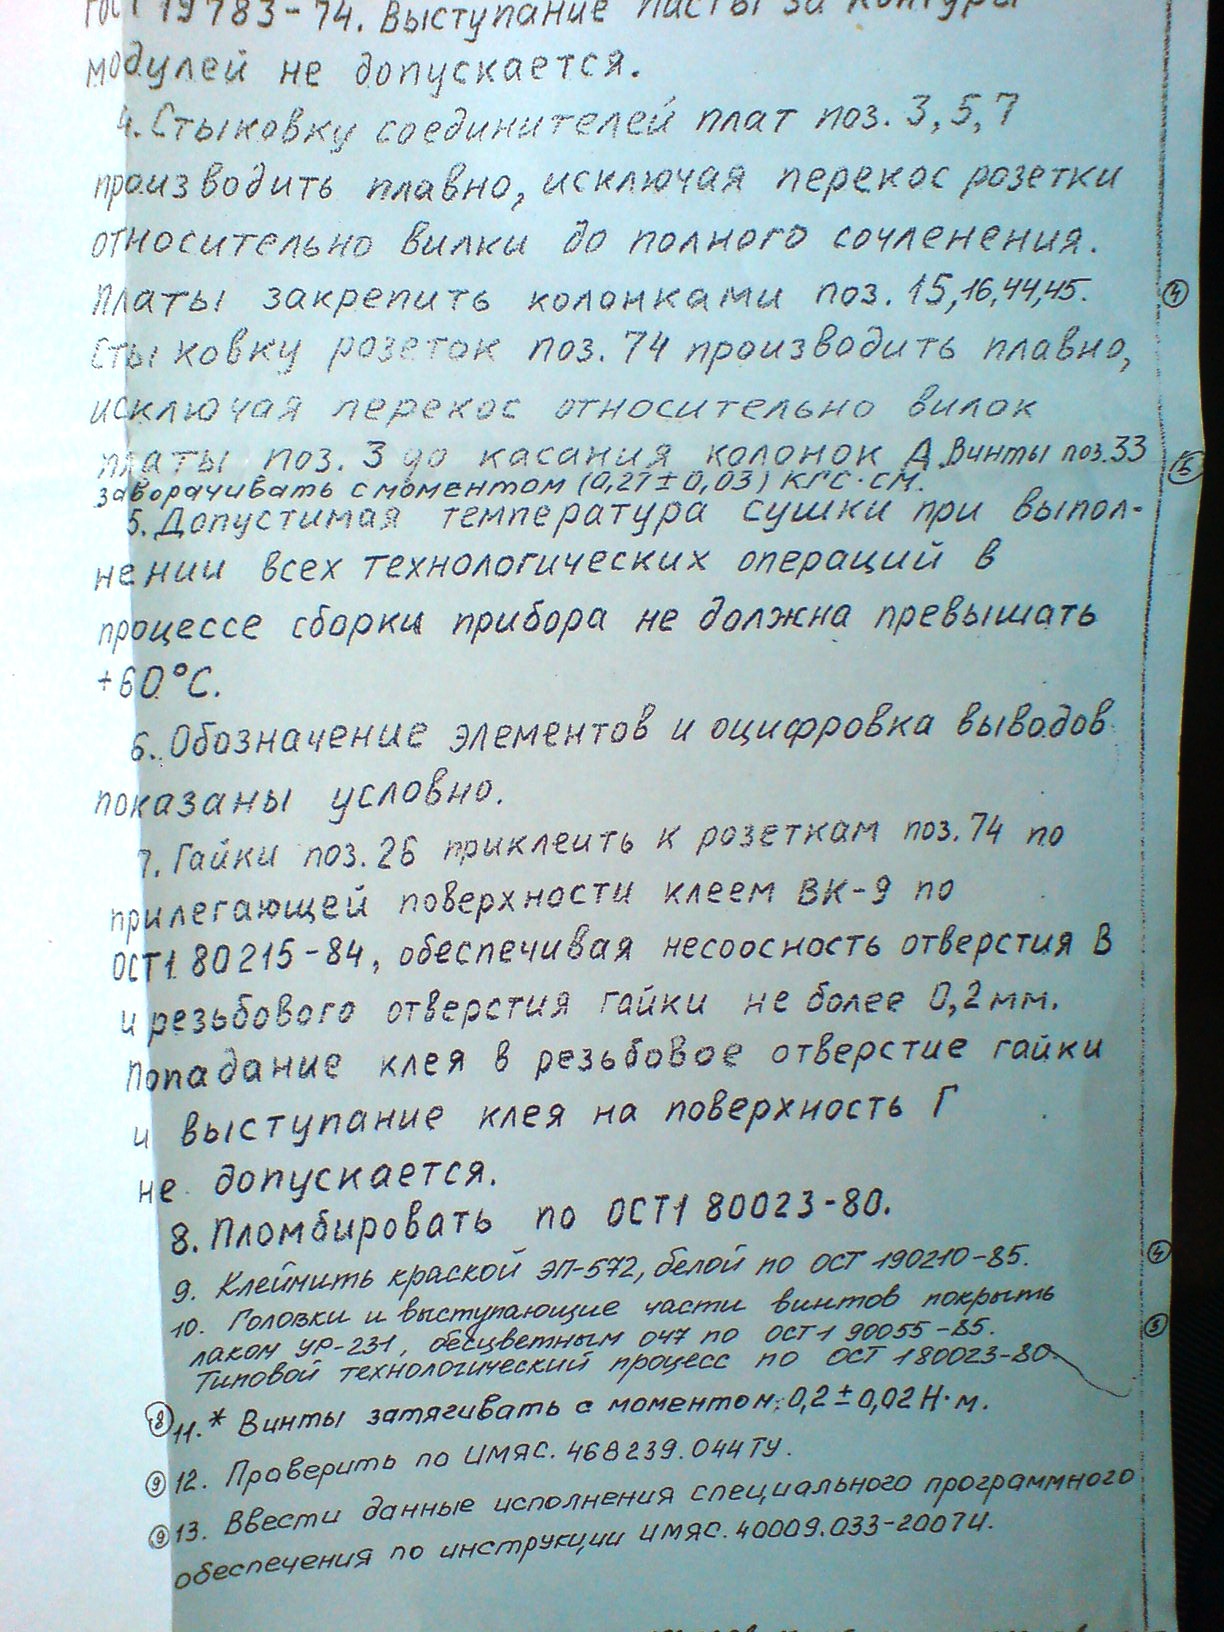 ГОСТ 19783-74. Выступание пасты за контуры
модулей не допускается.
4. Стыковку соединителей плат поз. 3,5,7
производить плавно, исключая перекос розетки
относительно вилки до полного сочленения.
Платы закрепить колонками поз. 15,16,44,45. ④
Стыковку розеток поз. 74 производить плавно,
исключая перекос относительно вилок
платы поз. 3 до касания колонок А. Винты поз.33
заворачивать с моментом (0,27±0,03) кгс·см.
5. Допустимая температура сушки при выпол-
нении всех технологических операций в
процессе сборки прибора не должна превышать
+60°С.
6. Обозначение элементов и оцифровка выводов
показаны условно.
7. Гайки поз. 26 приклеить к розеткам поз. 74 по
прилегающей поверхности клеем ВК-9 по
ОСТ1 80215-84, обеспечивая несоосность отверстия В
и резьбового отверстия гайки не более 0,2 мм.
Попадание клея в резьбовое отверстие гайки
и выступание клея на поверхность Г
не допускается.
8. Пломбировать по ОСТ1 80023-80.
9. Клеймить краской ЭП-572, белой по ОСТ 190210-85. ④
10. Головки и выступающие части винтов покрыть
лаком УР-231, бесцветным 047 по ОСТ1 90055-85.
Типовой технологический процесс по ОСТ 180023-80.
⑧ 11.* Винты затягивать с моментом 0,2 ± 0,02 Н·м.
⑨ 12. Проверить по ИМЯС. 468239.044ТУ.
⑨ 13. Ввести данные исполнения специального программного
обеспечения по инструкции ИМЯС. 40009.033-2007И.